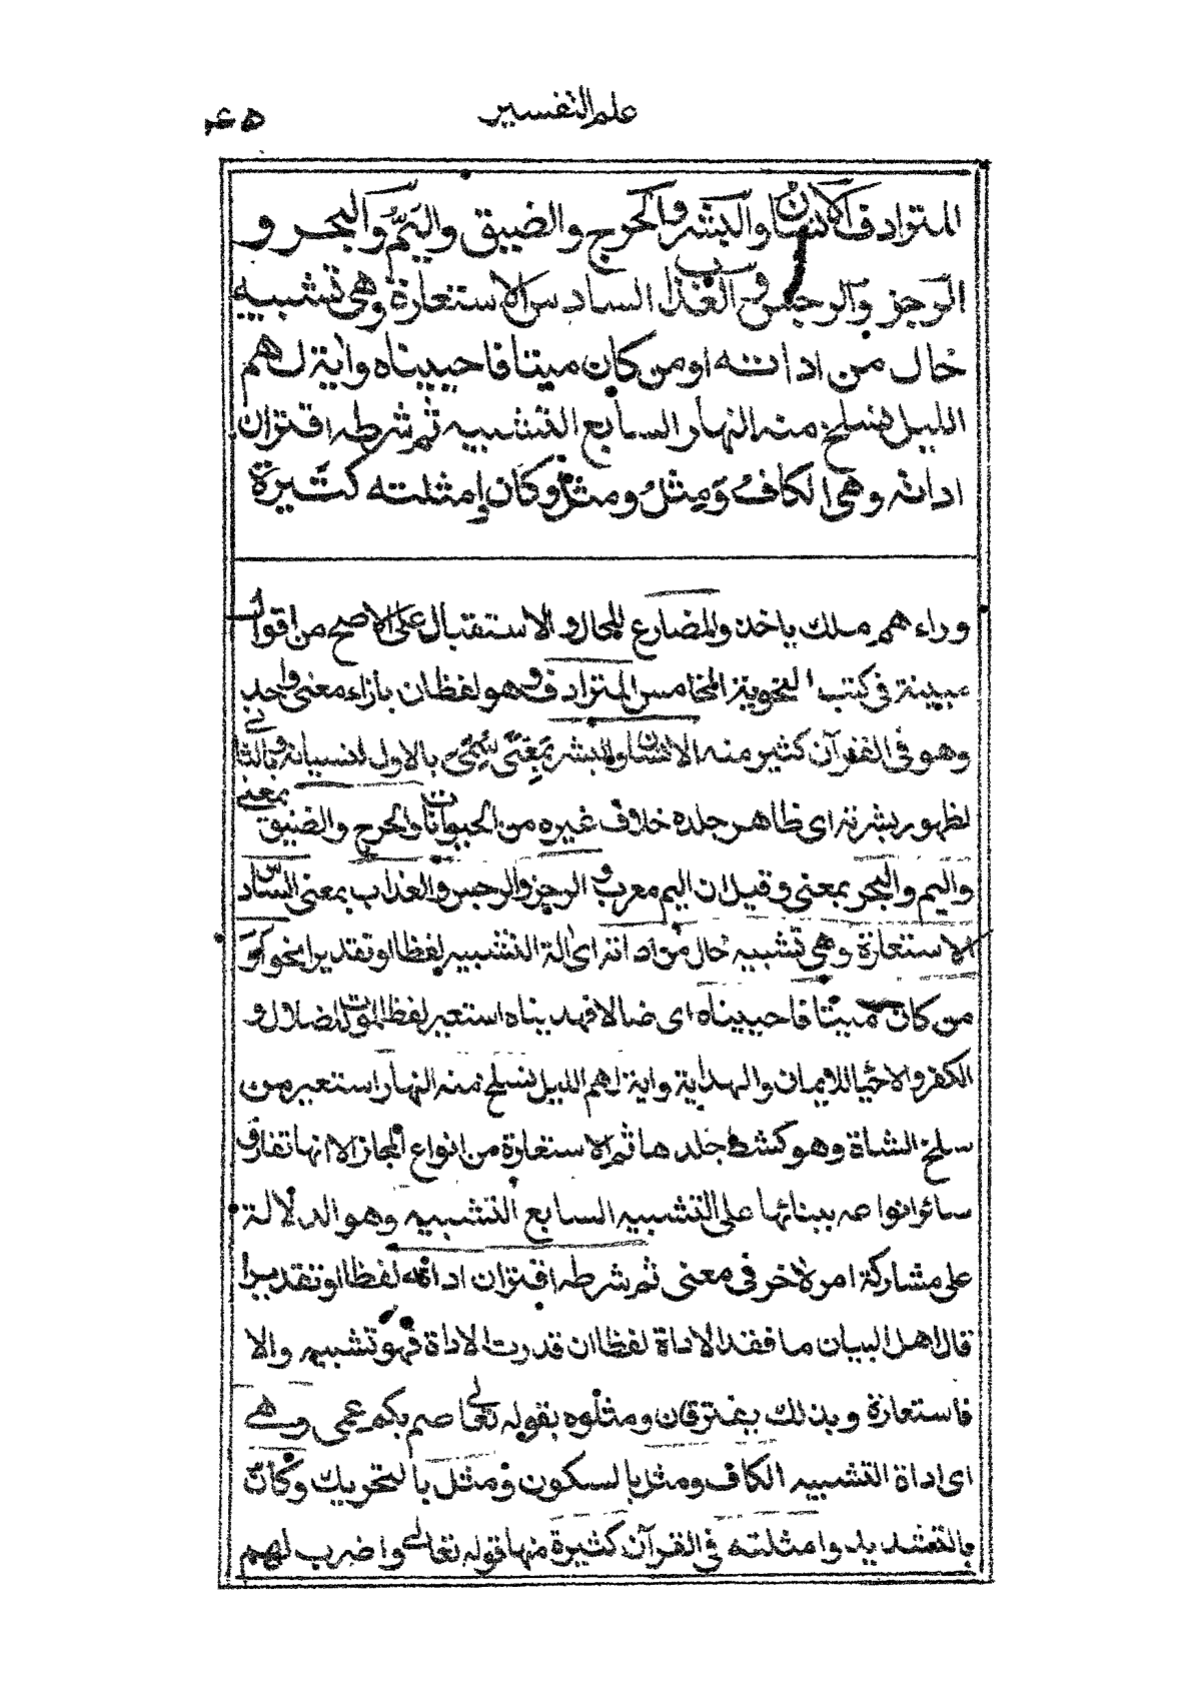 علم التفسير
٤٥
المترادف الانسان والبشر والحرج والضيق واليَمّ والبحر و
الرجز والرجس والعذاب السادس الاستعارة وهي تشبيه
خال من اداته او من كان ميتا فاحييناه واية لهم
الليل نسلخ منه النهار السابع التشبيه ثم شرطه اقتران
اداته وهي الكافُ وَمِثْلُ ومثل وكان وامثلته كثيرة
وراءهم ملك ياخذ والمضارع للحال والاستقبال على الاصح من اقوال
مبينة في كتب النحوية الخامس المترادف وهو لفظان بازاء معنى واحد
وهو في القرآن كثير منه الانسان والبشر بمعنى سمى بالاول لنسيانه وبالثاني
لظهور بشرته اى ظاهر جلده خلاف غيره من الحيوانات والحرج والضيق بمعنى
واليم والبحر بمعنى وقيل ان اليم معرب والرجز والرجس والعذاب بمعنى السادس
الاستعارة وهي تشبيه خال من اداته اى الة التشبيه لفظا او تقديرا نحو اوَ
من كان ميتا فاحييناه اى ضالا فهديناه استعير لفظ الموت للضلال و
الكفر والاحياء للايمان والهداية واية لهم الليل نسلخ منه النهار استعير من
سلخ الشاة وهو كشط جلدها ثم الاستعارة من انواع المجاز الا انها تفارق
سائر انواعه ببنائها على التشبيه السابع التشبيه وهو الدلالة
على مشاركة امر لاخر في معنى ثم شرطه اقتران اداته لفظا او تقديرا
قال اهل البيان ما فقد الاداة لفظا ان قدرت الاداة فهو تشبيه والا
فاستعارة وبذلك يفترقان ومثلوه بقوله تعالى صم بكم عمى وهي
اى اداة التشبيه الكاف ومثل بالسكون ومثل بالتحريك وكأنّ
بالتشديد وامثلته في القرآن كثيرة منها قوله تعالى واضرب لهم